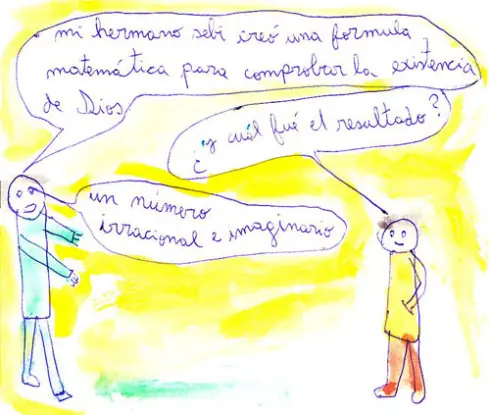 mi hermano sebi creó una formula
matemática para comprobar la existencia
de Dios
¿y cuál fué el resultado?
un número
irracional e imaginario